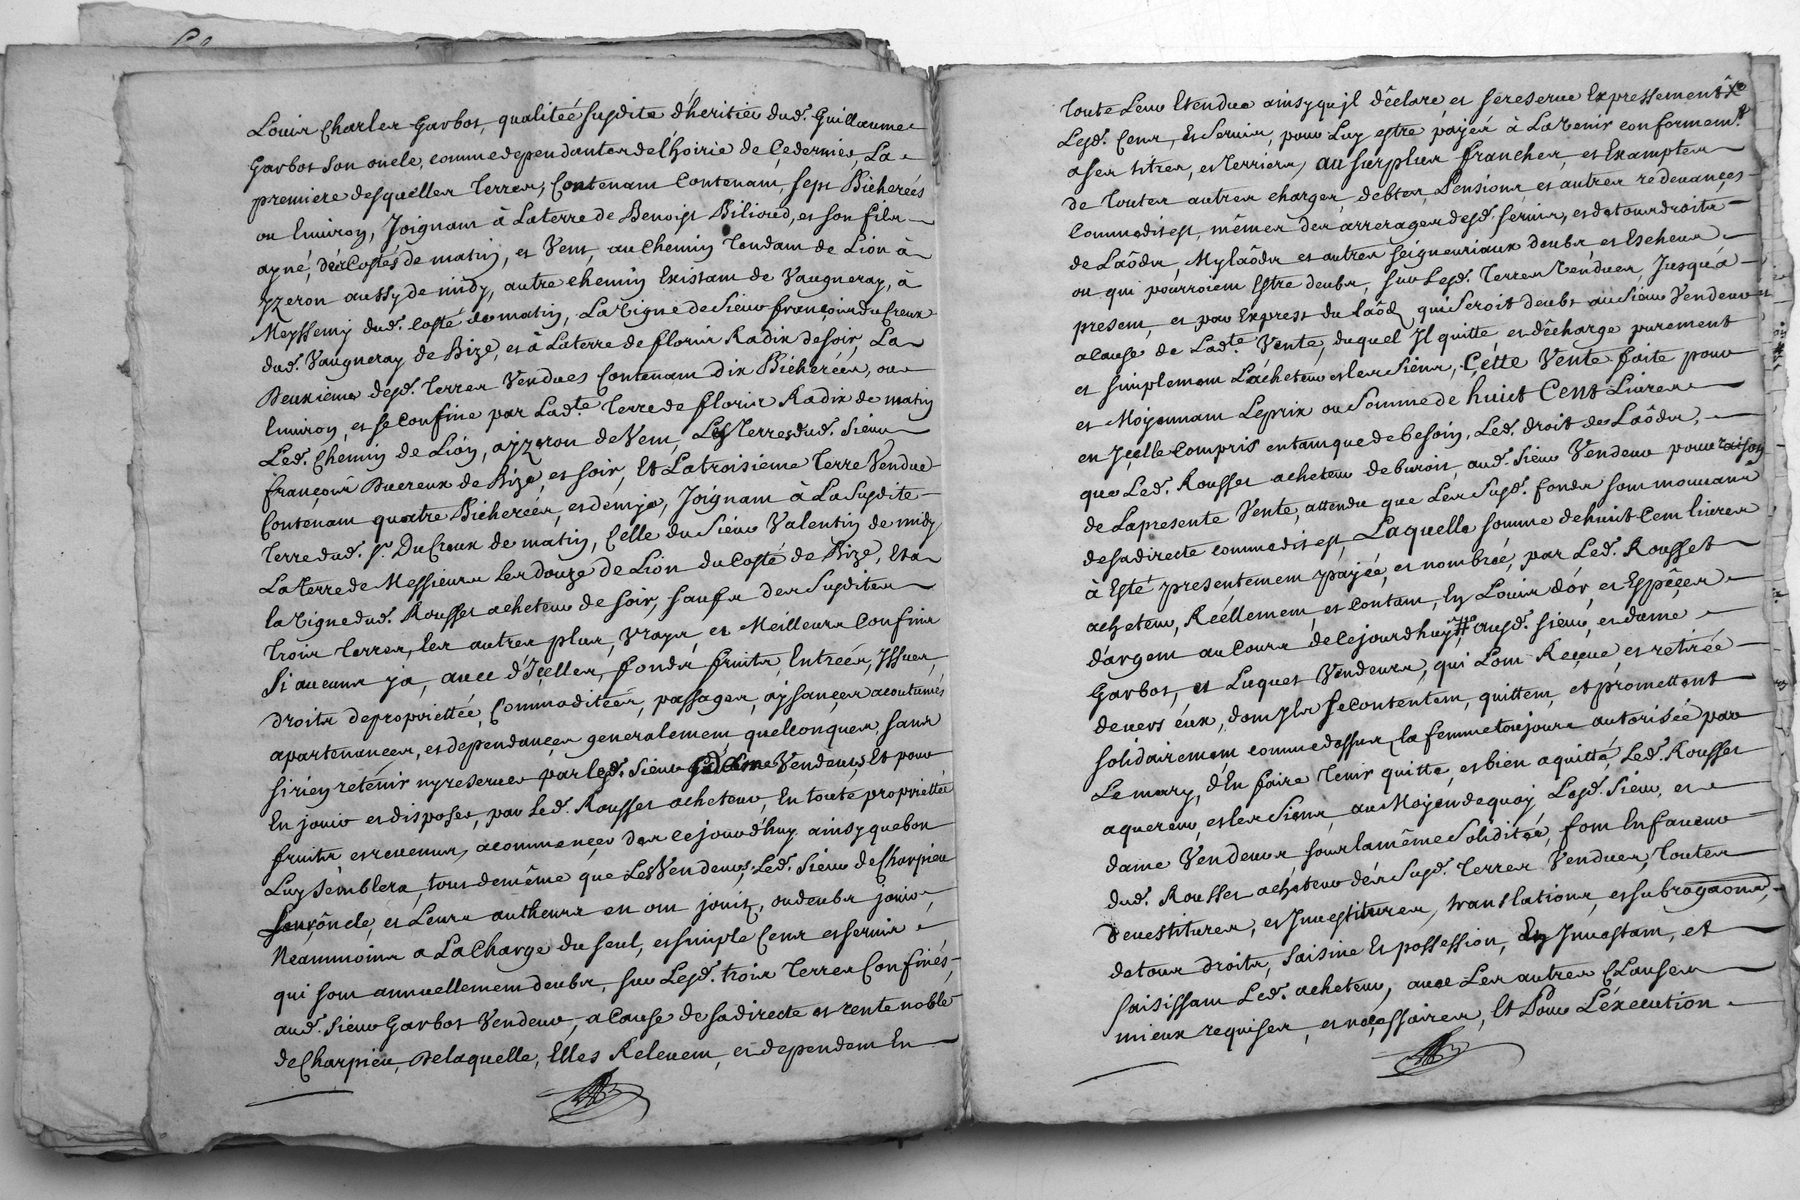 Louis Charles Garbot, qualitéé susdite d'heritier dud. Guillaume
Garbot son oncle, comme dependantes de l'hoirie de Cedermes, La
premiere desquelles Terres, Contenant Contenant, sept Bicherées
ou Environ, Joignant à La terre de Benoist Bilioud, et son fils
ayné, des Costés de matin, et Vent, au Chemin Tendant de Lion à
yzeron aussy de midy, autre chemin Existant de Vaugneray, à
Meyssemy dud. costé de matin, La Vigne de Sieur françois Du Creux
dud. Vaugneray de Bize, et à La terre de florir Radix de soir, La
Deuxieme desd. Terres Vendues Contenant dix Bicherées, ou
Environ, et se Confine par Lad.te Terre de florir Radix de matin
Led. Chemin de Lion, a yzeron de Vent, Les Terres dud. Sieur
françois Ducreux de Bize, et soir, Et La troisieme Terre Vendue
Contenant quatre Bicherées, et demye, Joignant à La Susdite
Terre dud. Sr. Du Creux de matin, Celle du Sieur Valentin de midy
La terre de Messieurs les douze de Lion du Costé de Bize, Et a
la Vigne dud. Rousset acheteur de soir, sauf des Susdites
Trois Terres, les autres plus, Vrays, et Meilleurs Confins
Si aucuns y a, avec d'Icelles, fonds, fruits, Entrées, Issues,
droits de propriettée, Commoditées, passages, aysances acoutumés
apartenances, et dependances generalement quelconques, sans
si rien retenir ny reserver par lesd. Sieur Vendeurs Et pour
En jouir et disposer, par Led. Rousset acheteur, En toute propriettée
fruits et revenus, a commencer des ce jourd'huy ainsy que bon
Luy semblera, tout de même que Les Vendeurs, Led. Sieur de Charpieu
Leur oncle, et Leurs autheurs en ont jouit, ou deubs jouir,
Neammoins a La Charge du seul, et simple Cens et servis
qui sont annuellement deubs, sur Lesd. trois Terres Confinés,
aud. Sieur Garbot Vendeur, a Cause de sa directe et rente noble
de Charpieu, De laquelle, Elles Relevent, et dependent En
Toute Leur Etendue ainsy qu'jl declare et se reserve Expressement
Lesd. Cens, et Servis, pour Luy estre payés à La Venir conformem.t
a ses titres, et terriers, au surplus franches, et Examptes
de Toutes autres charges, debtes, Pensions et autres redevances
Comme dit est, mêmes des arrerages desd. servis, et de tous droits
de Laôds, Mylaôds et autres seigneuriaux deubs et Escheus
ou qui pourroient Estre deubs, sur Lesd. Terres Vendues, Jusqu'a
present, et par Express du Laôd qui seroit deubt au Sieur Vendeur
a cause de Lad.te Vente, duquel Il quitte et décharge purement
et simplement L'acheteur et les Siens, Cette Vente faite pour
et Moyennant Le prix ou Somme de huict Cent Livres
en Icelle Compris en tant que de besoin, Led. droit de Laôds,
que Led. Rousset acheteur debvroit aud. Sieur Vendeur pour raison
de La presente Vente, attendu que Les Susd. fonds sont mouvans
de sa directe comme dit est, Laquelle somme de huit Cent livres
à Esté presentement payée, et nombrée, par Led. Rousset
acheteur, Réellement, et Contant, En Louis d'or, et Espèces
d'argent au Cours de ce jourd'huy ausd. Sieur, et dame
Garbot, et Luquet Vendeurs, qui L'ont Reçue, et retirée
devers eux, dont Ils se contentent, quittent, et promettent
solidairement comme dessus, la femme toujours autorisée par
Le mary, d'En faire Tenir quitte, et bien aquitté, Led. Rousset
aquereur, et les Siens, au Moyen de quoy, Lesd. Sieur, et
dame Vendeurs, sous la même Solidité, font En faveur
dud. Rousset acheteur des Susd. Terres Vendues, Toutes
Devestitures, et Investitures, translations, et subrogaons,
de tous droits, Saisine Et possession, En Investant, et
saisissant Led. acheteur, avec Les autres Clauses
mieux requises, et necessaires, Et Pour L'éxecution